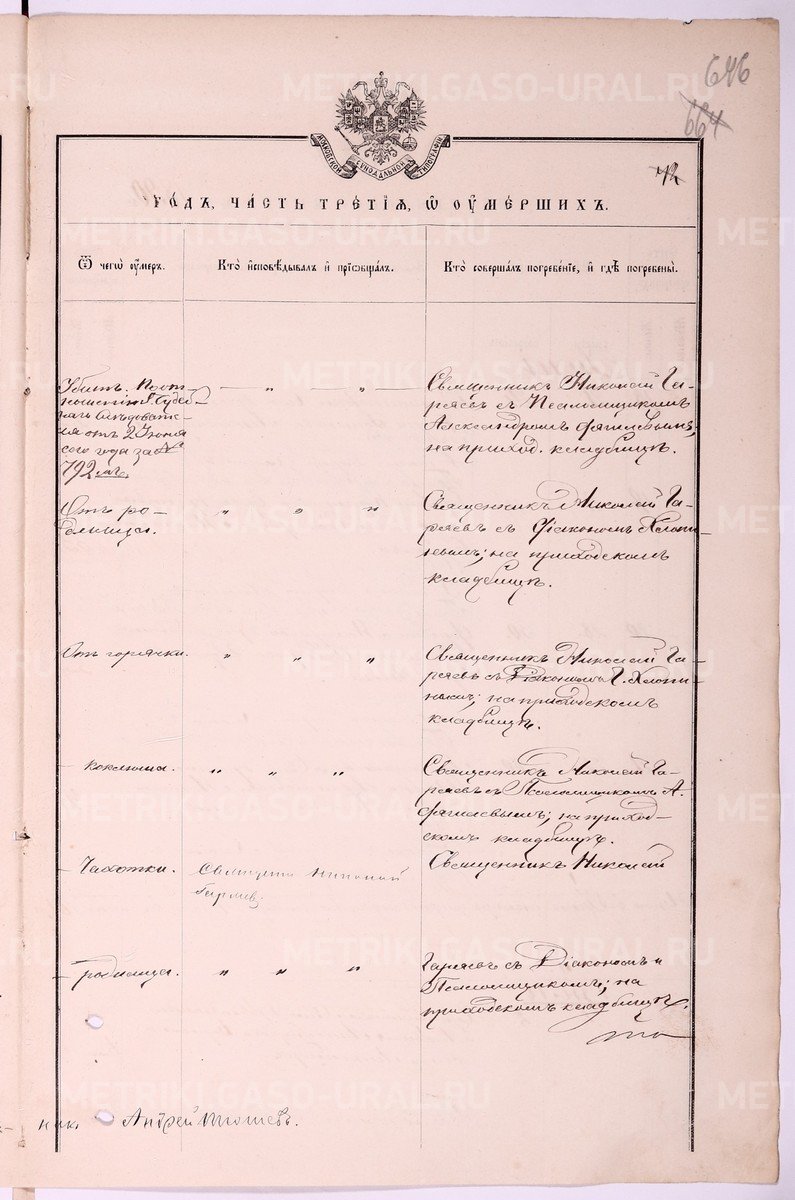 646
664
МОСКОВСКОЙ СѴНОДАЛЬНОЙ ТИПОГРАФІИ
72
ГОДЪ, ЧАСТЬ ТРЕТІѦ, Ѿ ОУМЕРШИХЪ.
Ѿ чегѡ оумеръ.
Кто исповѣдывалъ и пріобщалъ.
Кто совершалъ погребеніе, и гдѣ погребены.
Убитъ. По от-
ношенію Судеб-
наго Слѣдовате-
ля отъ 2 Іюня
сего года за №
792мъ.
„ „ „
Священникъ Николай Га-
ряевъ съ Псаломщикомъ
Александромъ
на приход. кладбищѣ.
Отъ ро-
димца.
„ „ „
Священникъ Николай Га-
ряевъ съ Діакономъ
на приходскомъ
кладбищѣ.
Отъ горячки.
„ „ „
Священникъ Николай Га-
ряевъ съ Діакономъ Г.
на приходскомъ
кладбищѣ.
Коклюша.
„ „ „
Священникъ Николай Га-
ряевъ съ Псаломщикомъ А.
на приход-
скомъ кладбищѣ.
Чахотки.
Священникъ Николай
Гаряевъ.
Священникъ Николай
родимца.
„ „ „
Гаряевъ съ Діакономъ и
Псаломщикомъ; на
приходскомъ кладбищѣ.
ник. Андрей
METRIKI.GASO-URAL.RU